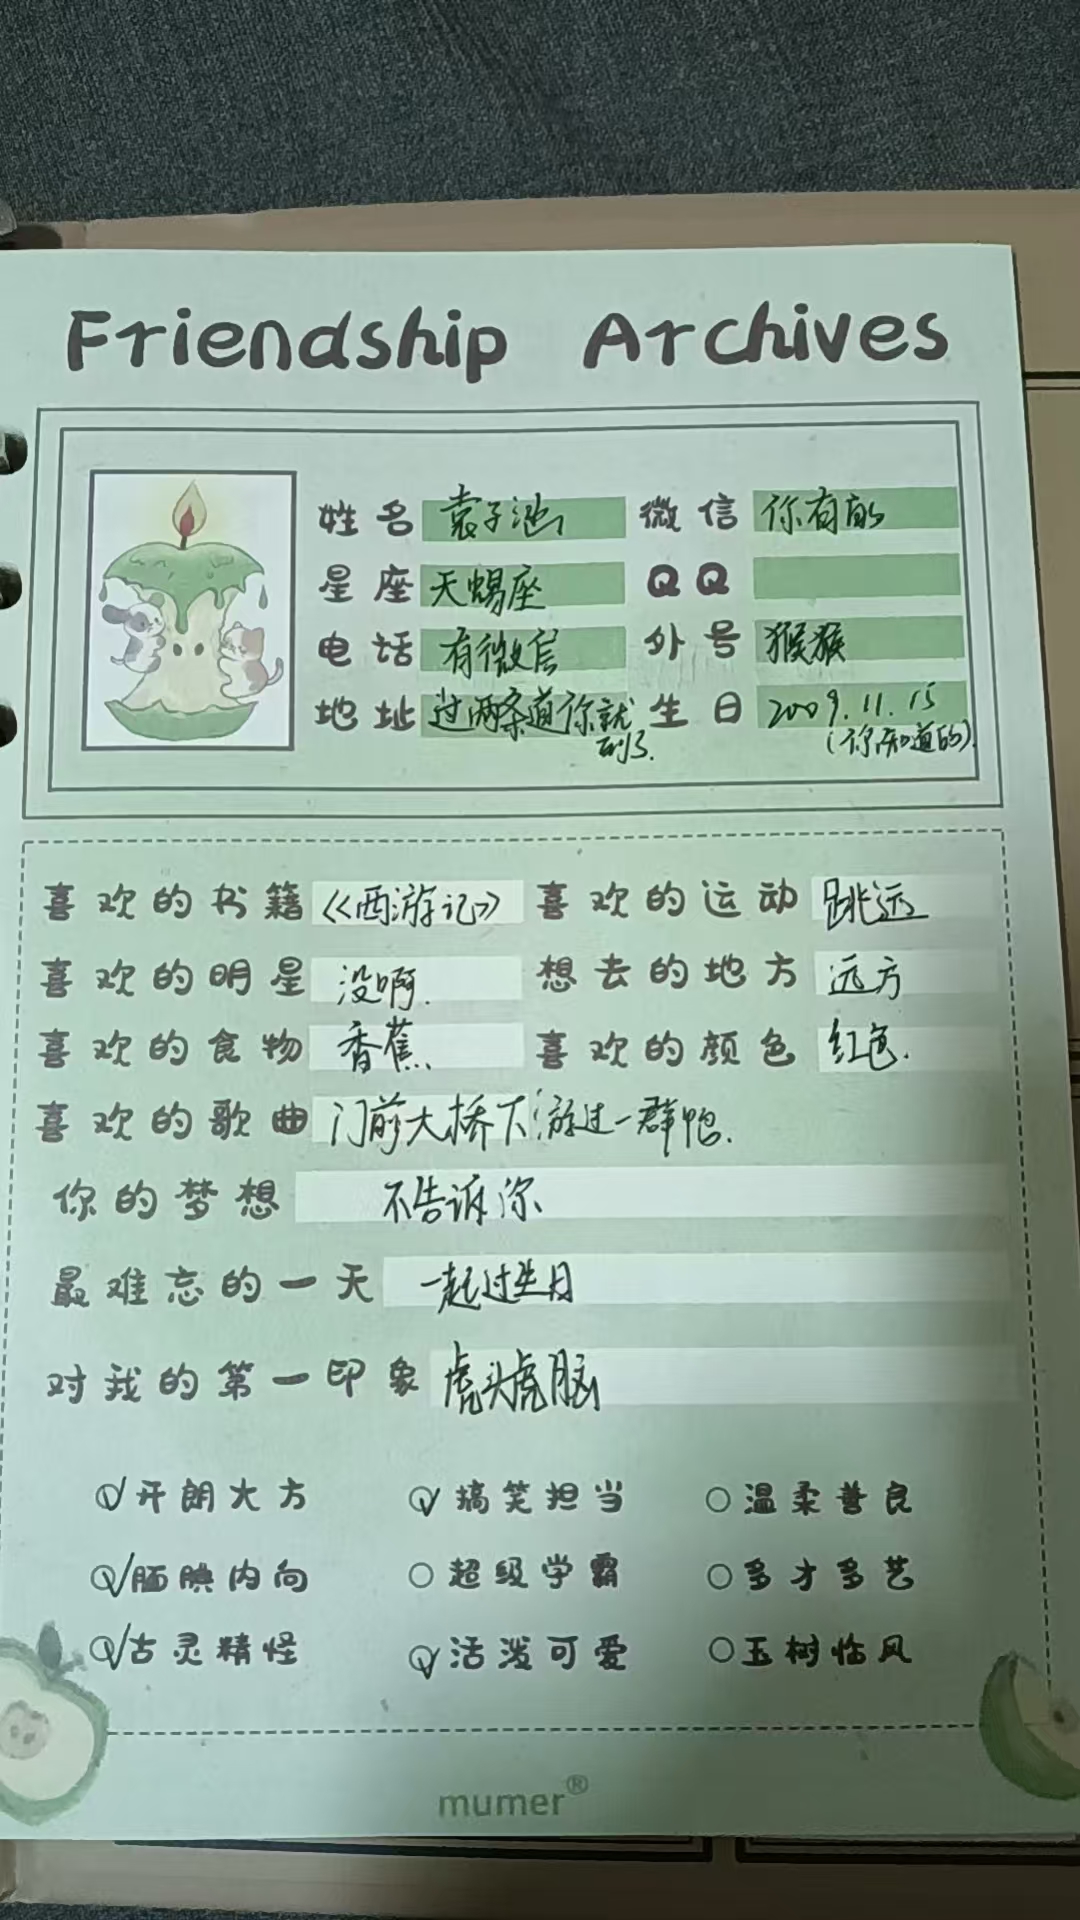 Friendship Archives
姓名 袁子池 微信 你有的
星座 天蝎座 QQ
电话 有微信 外号 猴猴
地址 过两条道你就到了. 生日 2009.11.15
(你知道的).
喜欢的书籍 《西游记》 喜欢的运动 跳远
喜欢的明星 没啊. 想去的地方 远方
喜欢的食物 香蕉. 喜欢的颜色 红色.
喜欢的歌曲 门前大桥下游过一群鸭.
你的梦想 不告诉你
最难忘的一天 一起过生日
对我的第一印象 虎头虎脑
开朗大方 搞笑担当 温柔善良
腼腆内向 超级学霸 多才多艺
古灵精怪 活泼可爱 玉树临风
mumer®